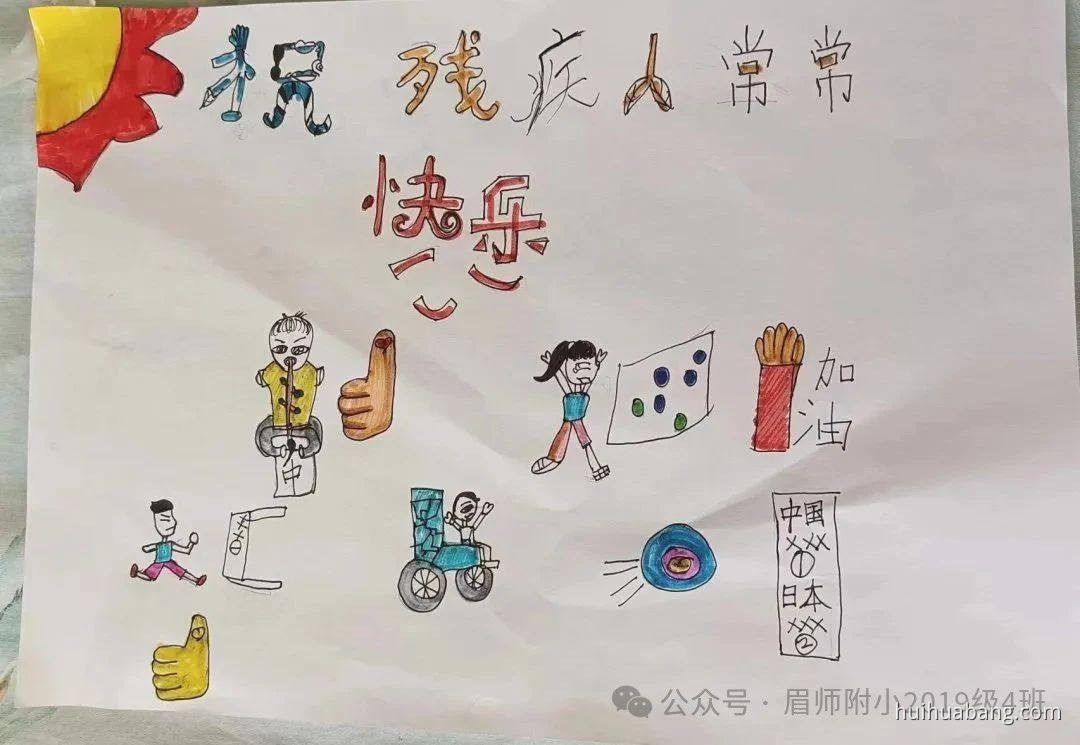 祝 残疾人常常
快乐
加
油
中
xxx
①
中国
xxx
①
日本
xxx
②
公众号 · 眉师附小2019级4班
huihuabang.com